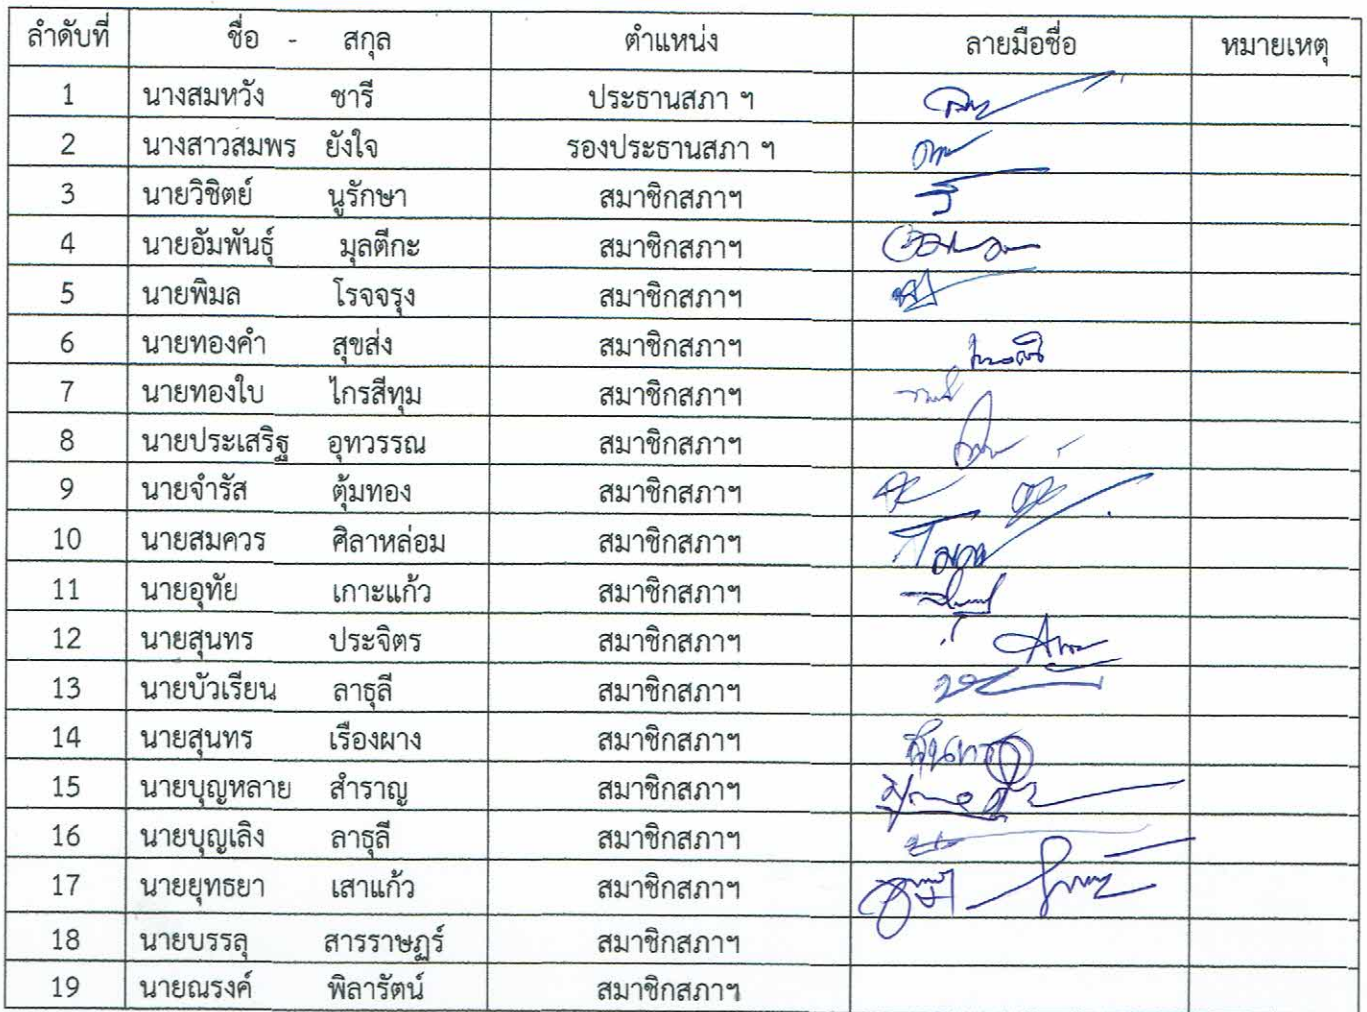 ลำดับที่ ชื่อ - สกุล ตำแหน่ง ลายมือชื่อ หมายเหตุ
1 นางสมหวัง ชารี ประธานสภา ฯ
2 นางสาวสมพร ยังใจ รองประธานสภา ฯ
3 นายวิชิตย์ นูรักษา สมาชิกสภาฯ
4 นายอัมพันธุ์ มุลตีกะ สมาชิกสภาฯ
5 นายพิมล โรจจรุง สมาชิกสภาฯ
6 นายทองคำ สุขส่ง สมาชิกสภาฯ
7 นายทองใบ ไกรสีทุม สมาชิกสภาฯ
8 นายประเสริฐ อุทวรรณ สมาชิกสภาฯ
9 นายจำรัส ตุ้มทอง สมาชิกสภาฯ
10 นายสมควร ศิลาหล่อม สมาชิกสภาฯ
11 นายอุทัย เกาะแก้ว สมาชิกสภาฯ
12 นายสุนทร ประจิตร สมาชิกสภาฯ
13 นายบัวเรียน ลาธุลี สมาชิกสภาฯ
14 นายสุนทร เรืองผาง สมาชิกสภาฯ
15 นายบุญหลาย สำราญ สมาชิกสภาฯ
16 นายบุญเลิง ลาธุลี สมาชิกสภาฯ
17 นายยุทธยา เสาแก้ว สมาชิกสภาฯ
18 นายบรรลุ สารราษฎร์ สมาชิกสภาฯ
19 นายณรงค์ พิลารัตน์ สมาชิกสภาฯ